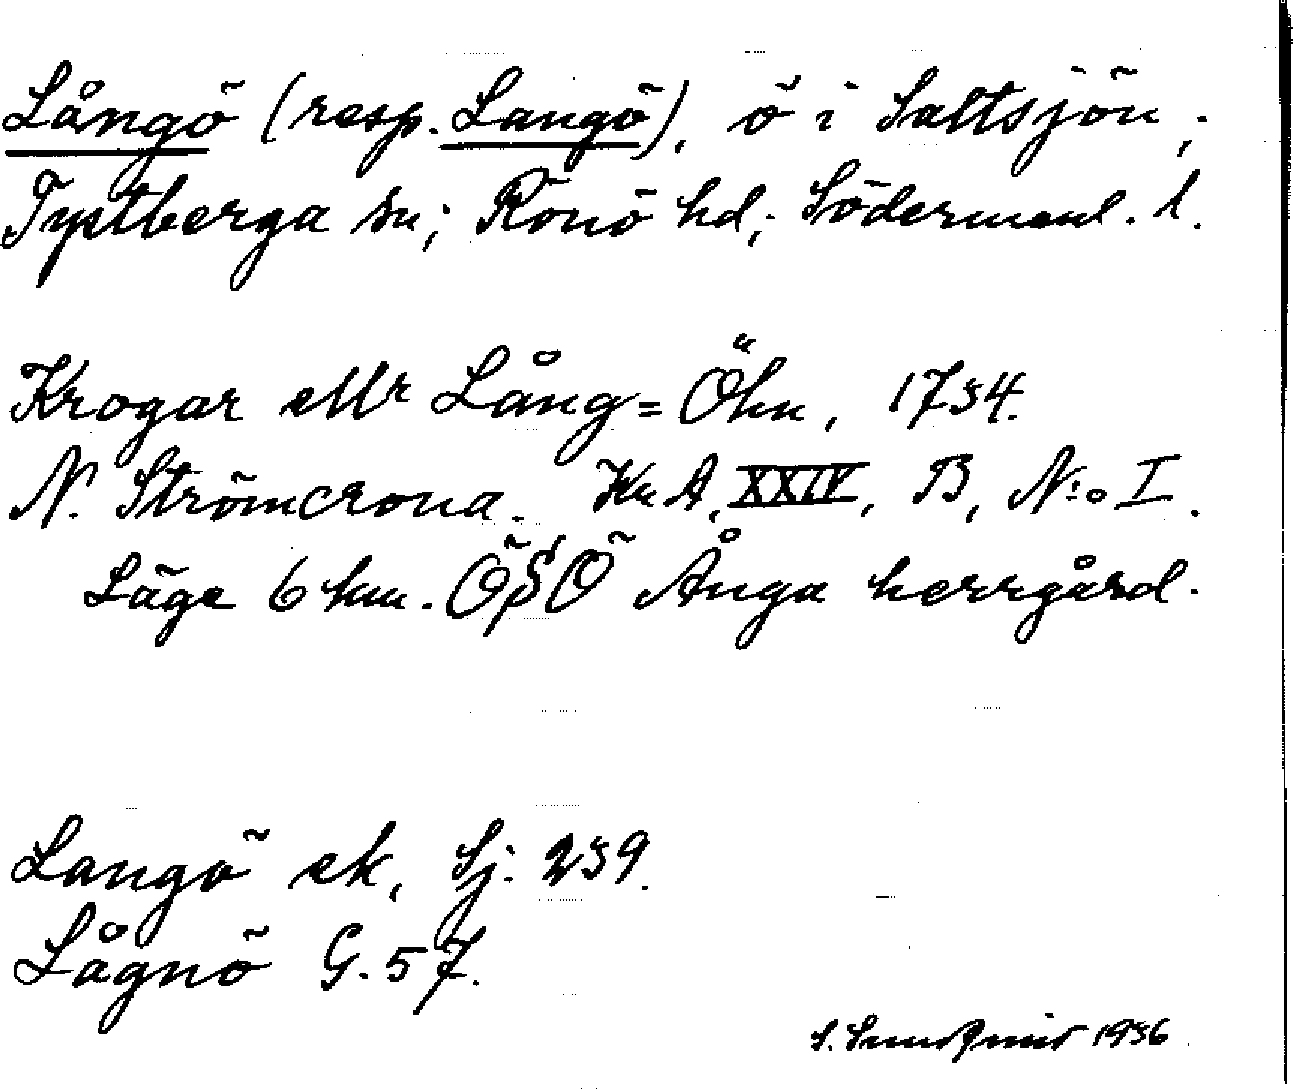 Långö (resp. Langö), ö i Saltsjön,.
Tystberga sn; Rönö hd; Södermanl. l.
Krogar ellr Lång=Öhn, 1734.
N. Strömcrona. Kr A, XXIV, B, N:o I.
Läge 6 km. ÖSÖ Ånga herrgård.
Langö ek, Sj. 239.
Lågnö G. 57.
S. Sundqvist 1936